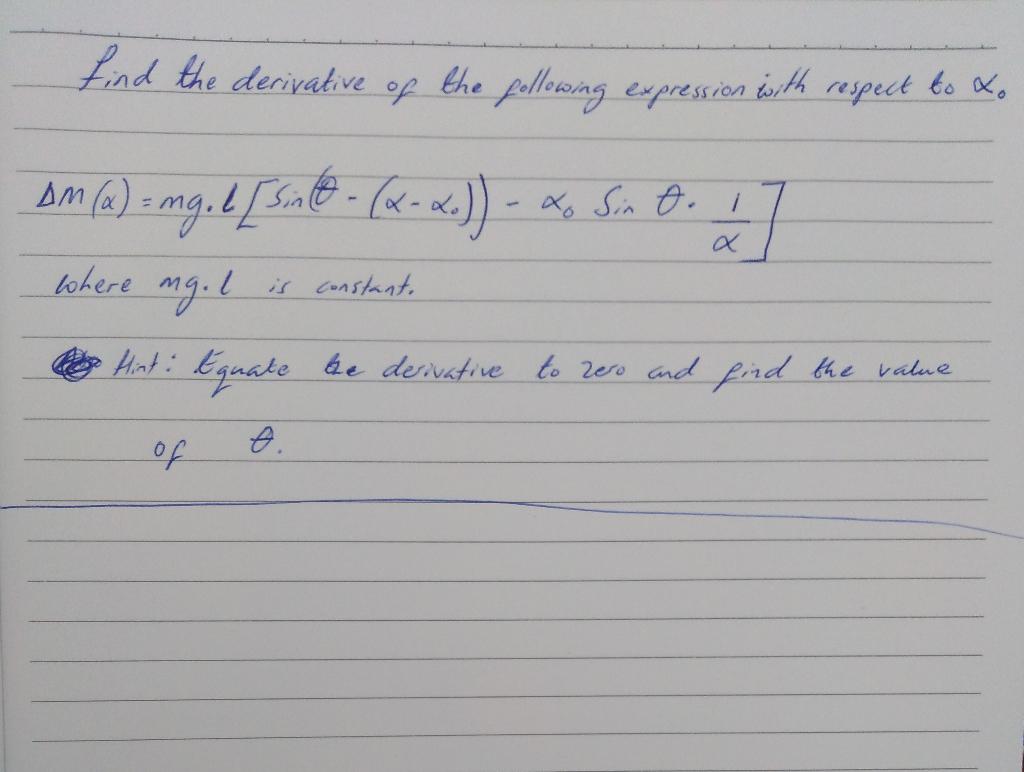 find the derivative of the following expression with respect to α₀
ΔM(α) = mg.l [Sin(θ - (α-α₀)) - α₀ Sin θ. 1/α]
where mg.l is constant.
Hint: Equate the derivative to zero and find the value
of θ.